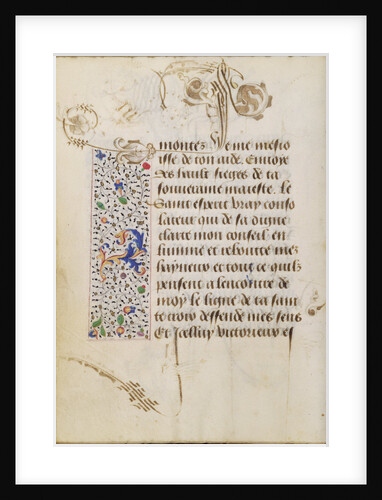 montez Je me mesio
isse de ton aide. Enuoye
des haulx sieges de ta
souueraine maieste. Le
saint esperit vray conso
lateur qui de sa digne
clarte mon conseil en
lumine et reboute mez
hayneux et tout ce quilz
pensent a lencontre de
moy le signe de ta sain
te croix deffende mes sens
Et cellui victorieux es